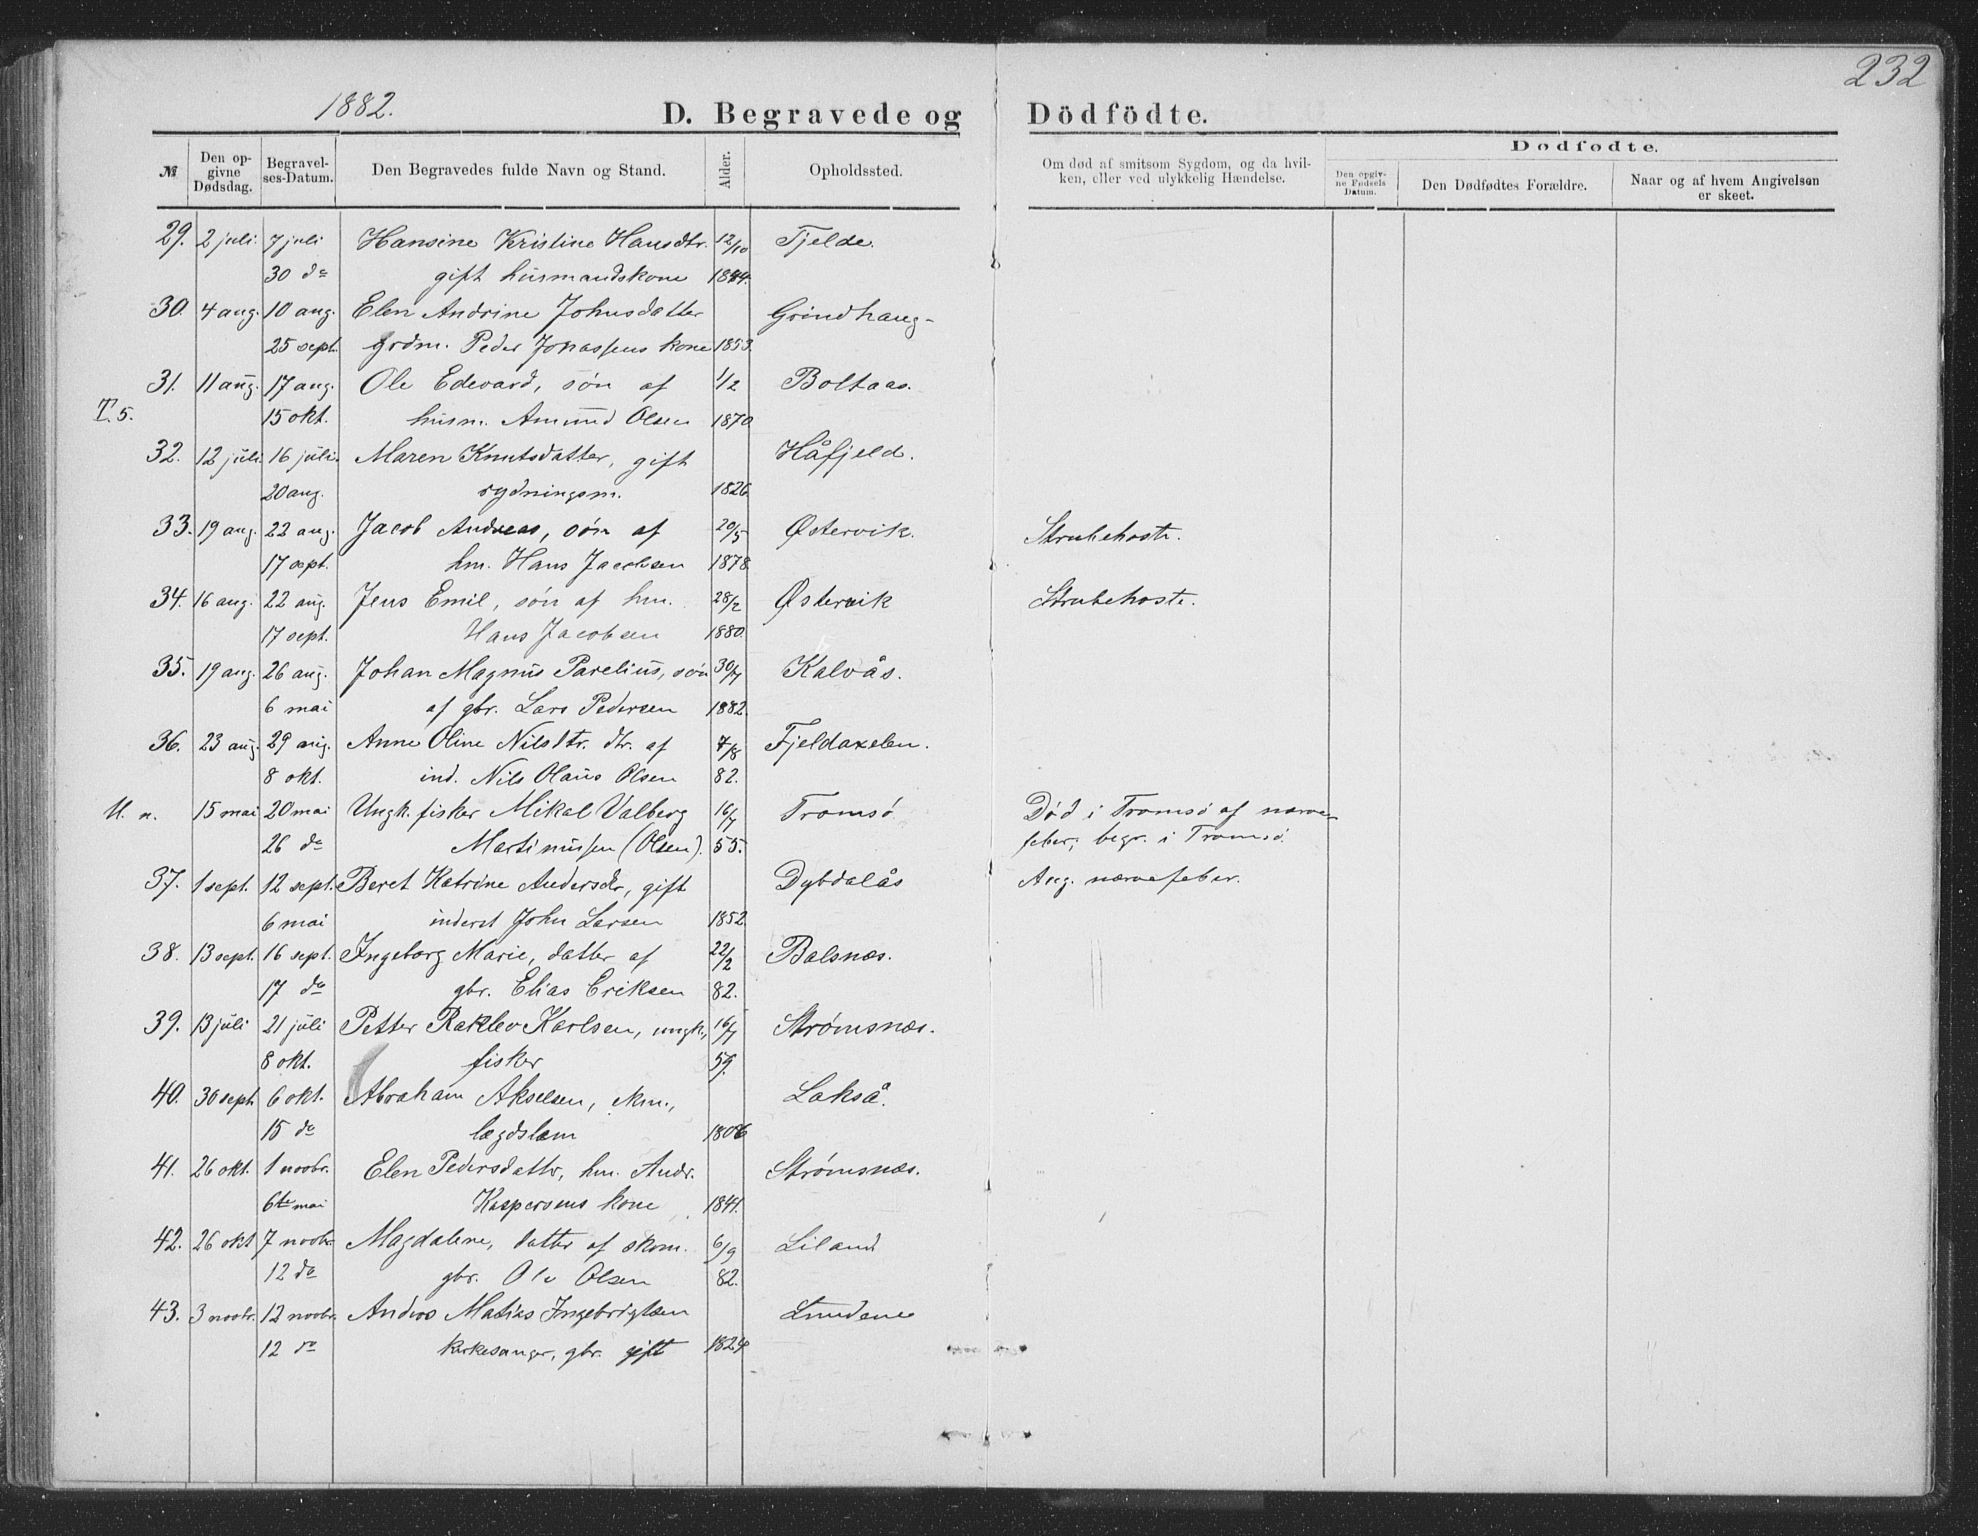 232
1882.
D. Begravede og Dödfödte.
№ Den opgivne Dødsdag. Begravelses-Datum. Den Begravedes fulde Navn og Stand. Alder. Opholdssted. Om død af smitsom Sygdom, og da hvilken, eller ved ulykkelig Hændelse. Dødfødte. Den opgivne Fødsels Datum. Den Dødfødtes Forældre. Naar og af hvem Angivelsen er skeet.
29. 2 juli. 7 juli Hansine Kristine Hansdtr. 12/10 Fjelde.
30 do gift husmandskone 1844.
30. 4 aug. 10 aug. Elen Andrine Johnsdatter Grindhaug
25 sept. grdm. Peder Jonassens kone 1853.
31. 11 aug. 17 aug. Ole Edevard, søn af 1/2 Boltaas.
T. 5. 15 okt. husm. Amund Olsen 1870
32. 12 juli. 16 juli. Maren Knutsdatter, gift Håfjeld.
20 aug. rydningsm. 1826
33. 19 aug. 22 aug. Jacob Andreas, søn af 20/5 Østervik. Strubehoste.
17 sept. hm. Hans Jacobsen 1878
34. 16 aug. 22 aug. Jens Emil, søn af hm. 28/2 Østervik Strubehoste.
17 sept. Hans Jacobsen 1880.
35. 19 aug. 26 aug. Johan Magnus Parelius, søn 30/7 Kalvås.
6 mai af gbr. Lars Pedersen 1882.
36. 23 aug. 29 aug. Anne Oline Nilsdtr. dtr. af 7/8 Fjeldaxelen.
8 okt. ind. Nils Olaus Olsen 82.
U. n. 15 mai 20 mai Ungk. fisker Mikal Valberg 16/7 Tromsø Død i Tromsø af nerve-
26 do Martinussen (Olsen). 55. feber; begr. i Tromsø.
37. 1 sept. 12 sept. Beret Katrine Andersdr, gift Dybdalås Ang. nærvefeber.
6 mai inderst John Larsen 1852
38. 13 sept. 16 sept. Ingeborg Marie, datter af 22/2 Balsnæs.
17 do gbr. Elias Eriksen 82.
39. 13 juli 21 juli Petter Raklev Karlsen, ungk., 16/7 Strømsnæs.
8 okt. fisker 59.
40. 30 sept. 6 okt. Abraham Akselsen, ekm., Lakså.
15 do lægdslem 1806
41. 26 okt. 1 novbr. Elen Pedersdatter, hm. Andr. Strømsnæs.
6te mai Kaspersens kone 1841.
42. 26 okt 7 novbr. Magdalene, datter af skom. 6/9 Liland
12 do gbr. Ole Olsen 82.
43. 3 novbr. 12 novbr. Anders Matias Ingebrigtsen Lundene
12 do kirkesanger, gbr. gift 1824